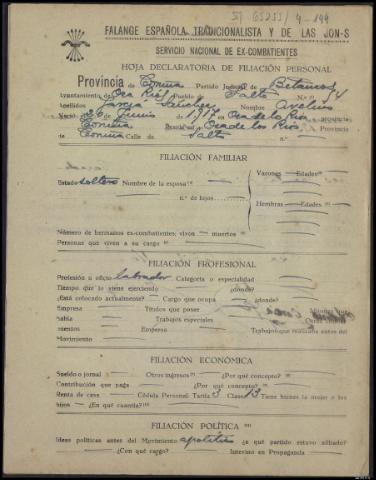 FALANGE ESPAÑOLA TRADICIONALISTA Y DE LAS JON-S
SERVICIO NACIONAL DE EX-COMBATIENTES
HOJA DECLARATORIA DE FILIACIÓN PERSONAL
Provincia de Coruña Partido Judicial de Betanzos
Ayuntamiento de Oza Ríos Pueblo Salto N.º
Apellidos García Sánchez Nombre Avelino
Nació 26 de Junio de 1917 en Oza de los Ríos provincia
Coruña Residencia Oza de los Ríos Provincia
de Coruña Calle de Salto n.º
FILIACIÓN FAMILIAR
Estado soltero Nombre de la esposa
n.º de hijos
Varones Edades
Hembras Edades
Número de hermanos ex-combatientes; vivos muertos
Personas que viven a su cargo
FILIACIÓN PROFESIONAL
Profesión u oficio labrador Categoría o especialidad
Tiempo que lo viene ejerciendo ¿donde?
¿Está colocado actualmente? Cargo que ocupa ¿donde?
Empresa Títulos que posee
Trabajos especiales
Empresa Trabajo que realizaba antes del
Movimiento
FILIACIÓN ECONÓMICA
Sueldo o jornal Otros ingresos ¿Por qué concepto?
Contribución que paga ¿Por qué concepto?
Renta de casa Cédula Personal Tarifa 3 Clase 13 Tiene bienes la mujer o los
hijos ¿En qué cuantía?
FILIACIÓN POLÍTICA
Ideas políticas antes del Movimiento apolítico ¿a qué partido estuvo afiliado?
¿Con qué cargo? Intervino en Propaganda